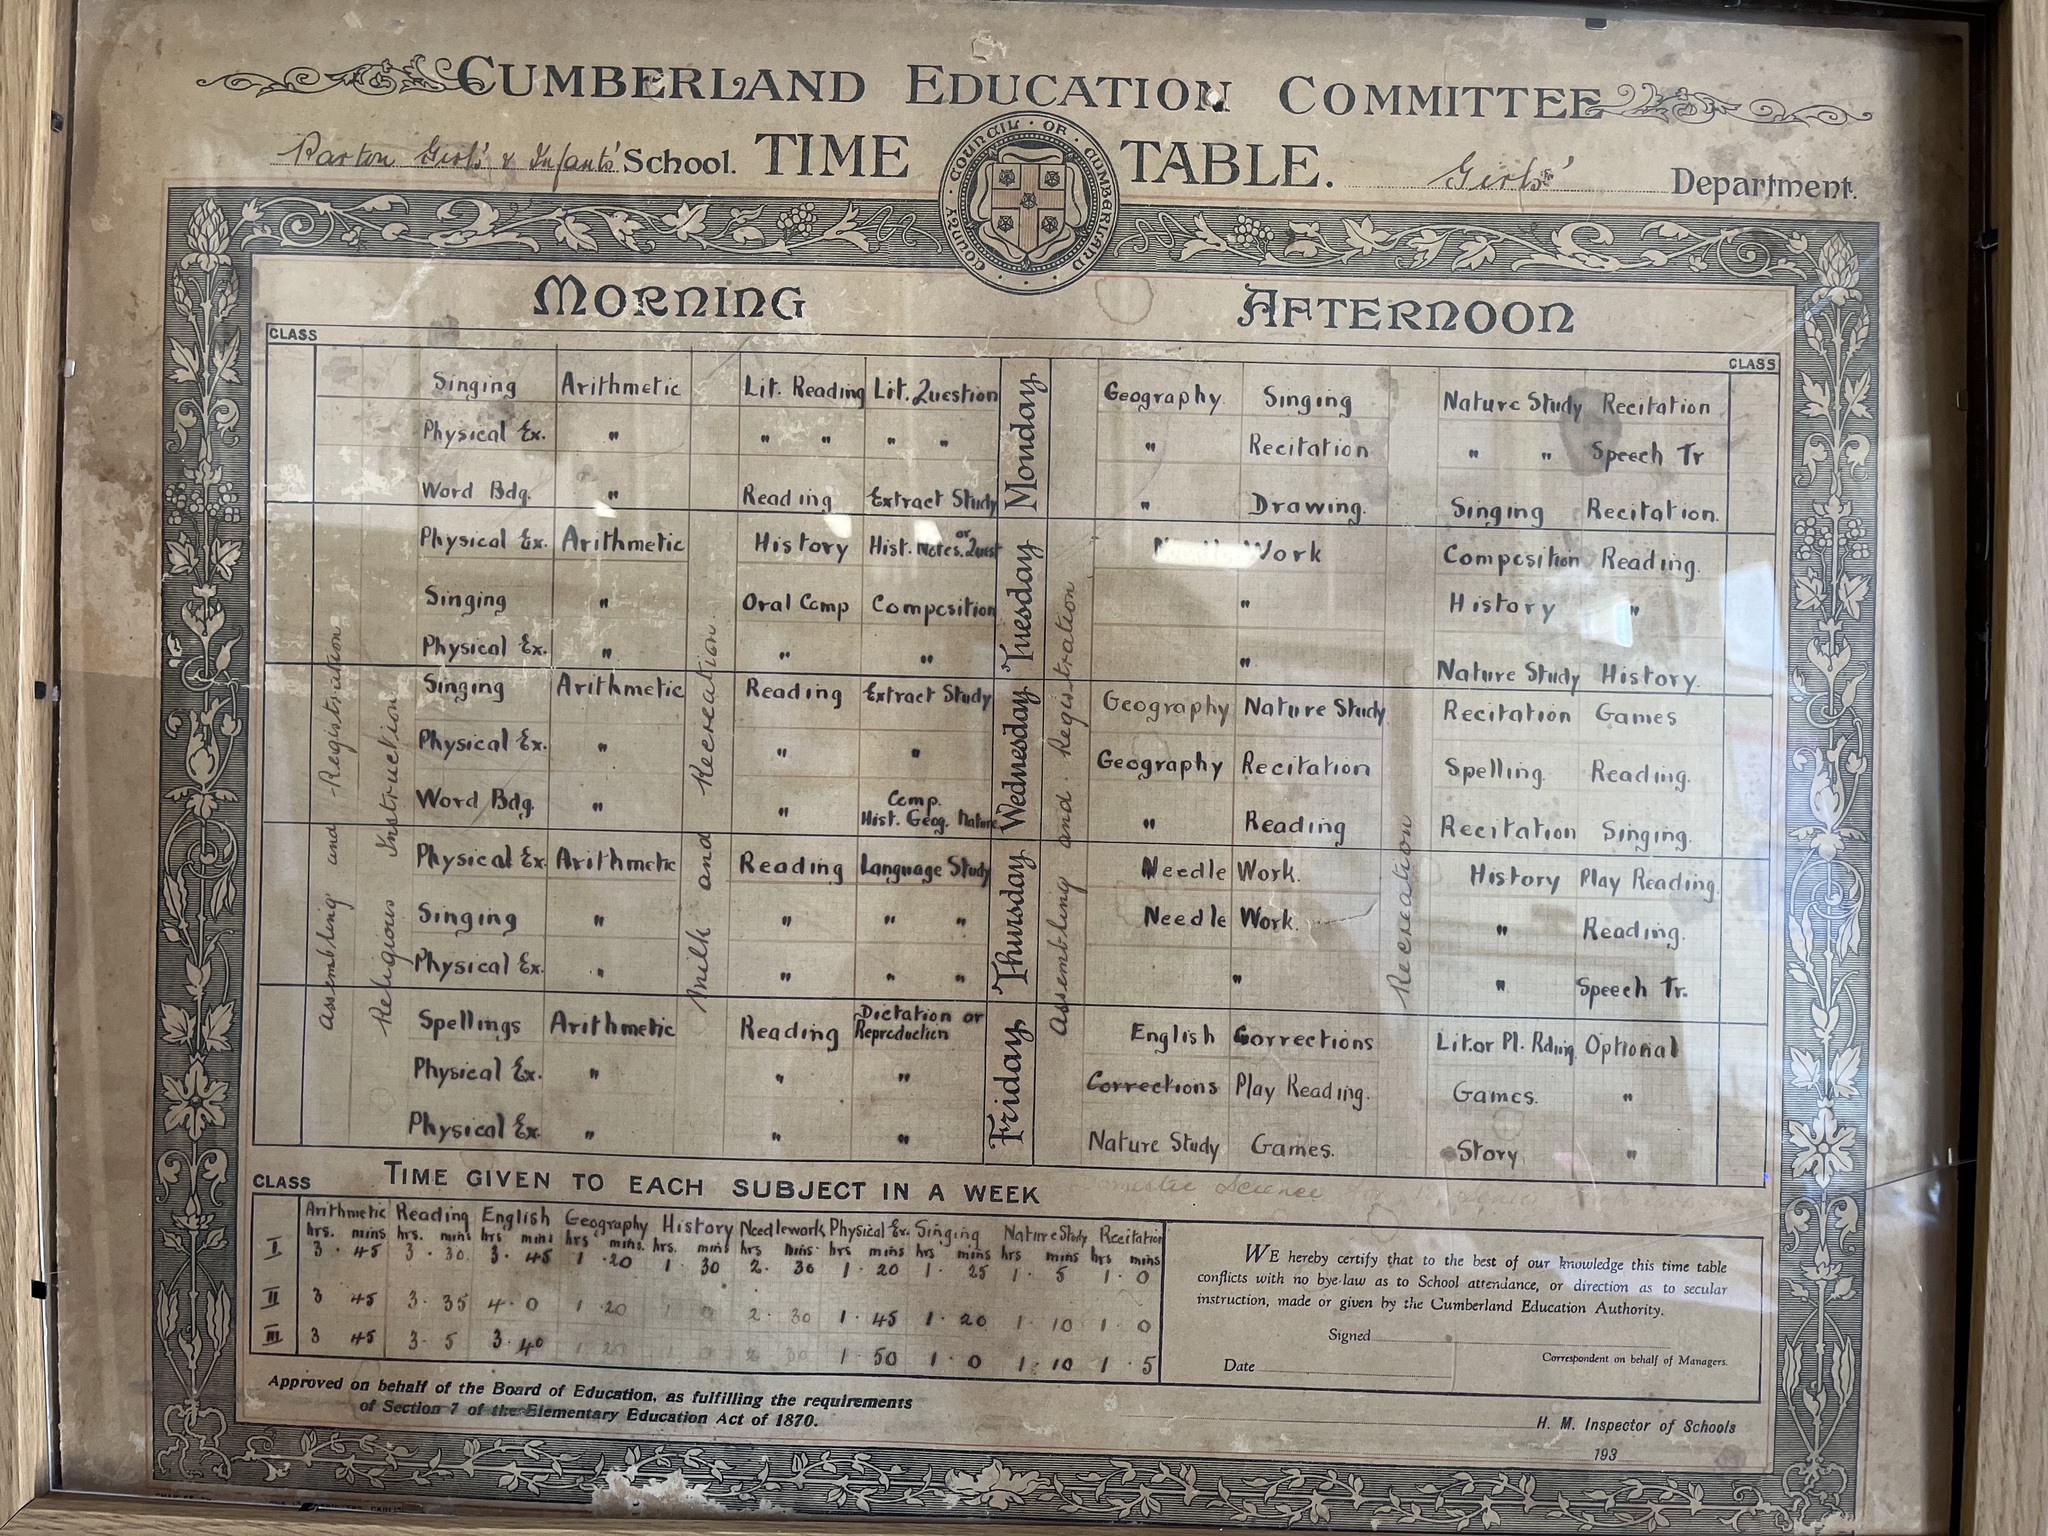 CUMBERLAND EDUCATION COMMITTEE
Parton Girls' & Infants' School. TIME TABLE. Girls' Department.
COUNTY · COUNCIL · OF · CUMBERLAND
MORNING AFTERNOON
CLASS CLASS
Assembling and Registration
Religious Instruction
Milk and Recreation
Assembling and Registration
Recreation
Monday
Singing Arithmetic Lit. Reading Lit. Question Geography Singing Nature Study Recitation
Physical Ex. " " " " " " Recitation " " Speech Tr
Word Bdg. " Reading Extract Study " Drawing. Singing Recitation.
Tuesday
Physical Ex. Arithmetic History Hist. Notes. or Quest Work Composition Reading.
Singing " Oral Comp Composition " History "
Physical Ex. " " " " Nature Study History.
Wednesday
Singing Arithmetic Reading Extract Study Geography Nature Study Recitation Games
Physical Ex. " " " Geography Recitation Spelling. Reading.
Word Bdg. " " Comp. Hist. Geog. Nature " Reading Recitation Singing.
Thursday
Physical Ex. Arithmetic Reading Language Study Needle Work. History Play Reading.
Singing " " " " Needle Work. " Reading.
Physical Ex. " " " " " " Speech Tr.
Friday
Spellings Arithmetic Reading Dictation or Reproduction English Corrections Lit. or Pl. Rding. Optional
Physical Ex. " " " Corrections Play Reading. Games. "
Physical Ex. " " " Nature Study Games. Story "
CLASS TIME GIVEN TO EACH SUBJECT IN A WEEK
Science
Arithmetic Reading English Geography History Needlework Physical Ex. Singing Nature Study Recitation
hrs. mins hrs. mins hrs mins hrs mins. hrs. mins hrs mins. hrs mins hrs mins hrs mins hrs mins
I 3 · 45 3 · 30 3 · 45 1 · 20 1 · 30 2 · 30 1 · 20 1 · 25 1 · 5 1 · 0
II 3 45 3 · 35 4 · 0 1 · 20 1 0 2 · 30 1 · 45 1 · 20 1 · 10 1 · 0
III 3 45 3 · 5 3 · 40 1 20 1 0 2 30 1 · 50 1 · 0 1 · 10 1 · 5
WE hereby certify that to the best of our knowledge this time table
conflicts with no bye-law as to School attendance, or direction as to secular
instruction, made or given by the Cumberland Education Authority.
Signed
Correspondent on behalf of Managers.
Date
Approved on behalf of the Board of Education, as fulfilling the requirements
of Section 7 of the Elementary Education Act of 1870.
H. M. Inspector of Schools
193